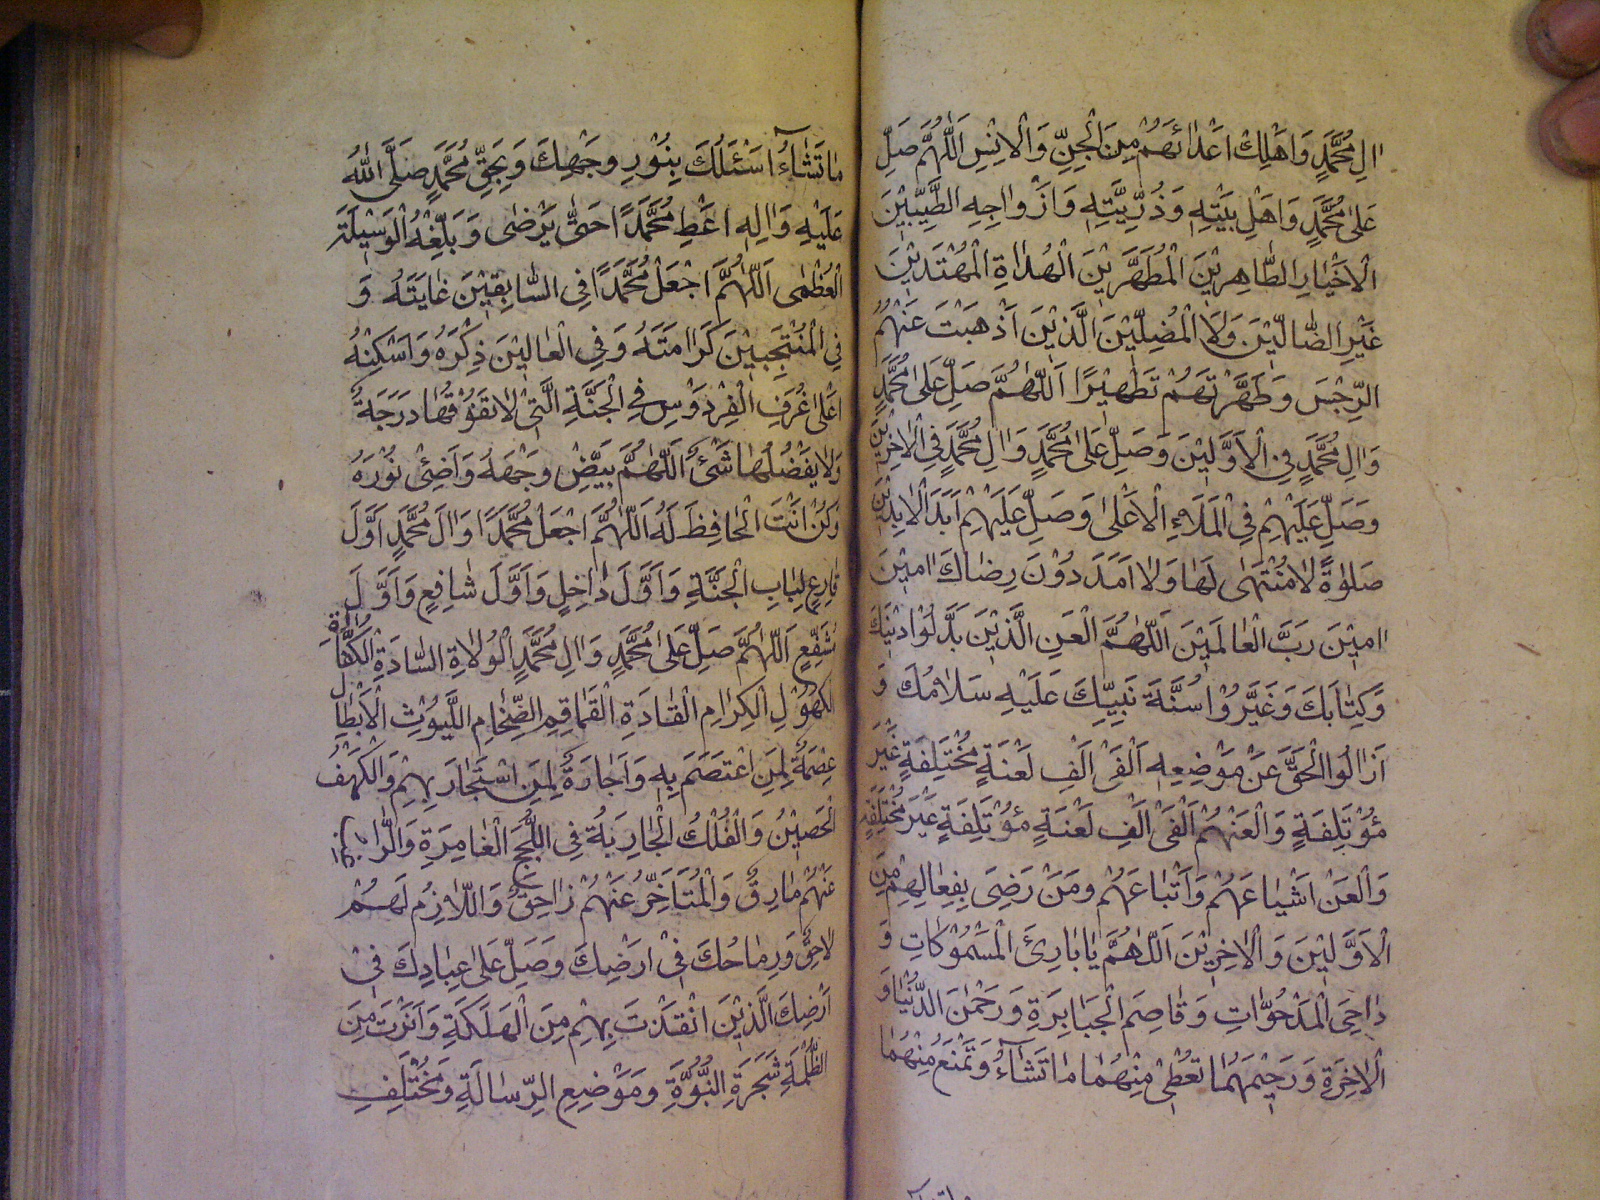 اٰلِ مُحَمَّدٍ وَاَهْلِكْ اَعْدٰائَهُمْ مِنَ الْجِنِّ وَالْاِنْسِ اَللّٰهُمَّ صَلِّ
عَلىٰ مُحَمَّدٍ وَاَهْلِ بَيْتِهِ وَذُرِّيَّتِهِ وَاَزْوٰاجِهِ الطَّيِّبِيْنَ
الْاَخْيٰارِ الطّٰاهِرِيْنَ الْمُطَهَّرِيْنَ الْهُدٰاةِ الْمُهْتَدِيْنَ
غَيْرِ الضّٰالِّيْنَ وَلَا الْمُضِلِّيْنَ الَّذِيْنَ اَذْهَبْتَ عَنْهُمُ
الرِّجْسَ وَطَهَّرْتَهُمْ تَطْهِيْرًا اَللّٰهُمَّ صَلِّ عَلىٰ مُحَمَّدٍ
وَاٰلِ مُحَمَّدٍ فِي الْاَوَّلِيْنَ وَصَلِّ عَلىٰ مُحَمَّدٍ وَاٰلِ مُحَمَّدٍ فِي الْاٰخِرِيْنَ
وَصَلِّ عَلَيْهِمْ فِي الْمَلَاءِ الْاَعْلىٰ وَصَلِّ عَلَيْهِمْ اَبَدَ الْاٰبِدِيْنَ
صَلٰوةً لٰا مُنْتَهىٰ لَهٰا وَلٰا اَمَدَ دُوْنَ رِضٰاكَ اٰمِيْنَ
اٰمِيْنَ رَبَّ الْعٰالَمِيْنَ اَللّٰهُمَّ الْعَنِ الَّذِيْنَ بَدَّلُوْا دِيْنَكَ
وَكِتٰابَكَ وَغَيَّرُوْا سُنَّةَ نَبِيِّكَ عَلَيْهِ سَلٰامُكَ وَ
اَزٰالُوا الْحَقَّ عَنْ مَوْضِعِهِ اَلْفَيْ اَلْفِ لَعْنَةٍ مُخْتَلِفَةٍ غَيْرَ
مُؤْتَلِفَةٍ وَالْعَنْهُمْ اَلْفَيْ اَلْفِ لَعْنَةٍ مُؤْتَلِفَةٍ غَيْرَ مُخْتَلِفَةٍ
وَالْعَنْ اَشْيٰاعَهُمْ وَاَتْبٰاعَهُمْ وَمَنْ رَضِيَ بِفِعٰالِهِمْ مِنَ
الْاَوَّلِيْنَ وَالْاٰخِرِيْنَ اَللّٰهُمَّ يٰا بٰارِئَ الْمَسْمُوْكٰاتِ وَ
دٰاحِيَ الْمَدْحُوّٰاتِ وَقٰاصِمَ الْجَبٰابِرَةِ وَرَحْمٰنَ الدُّنْيٰا وَ
الْاٰخِرَةِ وَرَحِيْمَهُمٰا تُعْطِيْ مِنْهُمٰا مٰا تَشٰآءُ وَتَمْنَعُ مِنْهُمٰا
مٰا تَشٰآءُ اَسْئَلُكَ بِنُوْرِ وَجْهِكَ وَبِحَقِّ مُحَمَّدٍ صَلَّى اللّٰهُ
عَلَيْهِ وَاٰلِهِ اَعْطِ مُحَمَّدًا حَتّٰى يَرْضىٰ وَبَلِّغْهُ الْوَسِيْلَةَ
الْعُظْمىٰ اَللّٰهُمَّ اجْعَلْ مُحَمَّدًا فِي السّٰابِقِيْنَ غٰايَتَهُ وَ
فِي الْمُنْتَجَبِيْنَ كَرٰامَتَهُ وَفِي الْعٰالِيْنَ ذِكْرَهُ وَاَسْكِنْهُ
اَعْلىٰ غُرَفِ الْفِرْدَوْسِ فِي الْجَنَّةِ الَّتِيْ لٰا تَفُوْقُهٰا دَرَجَةٌ
وَلٰا يَفْضُلُهٰا شَيْءٌ اَللّٰهُمَّ بَيِّضْ وَجْهَهُ وَاَضِئْ نُوْرَهُ
وَكُنْ اَنْتَ الْحٰافِظَ لَهُ اَللّٰهُمَّ اجْعَلْ مُحَمَّدًا وَاٰلَ مُحَمَّدٍ اَوَّلَ
قٰارِعٍ لِبٰابِ الْجَنَّةِ وَاَوَّلَ دٰاخِلٍ وَاَوَّلَ شٰافِعٍ وَاَوَّلَ
مُشَفَّعٍ اَللّٰهُمَّ صَلِّ عَلىٰ مُحَمَّدٍ وَاٰلِ مُحَمَّدٍ الْوُلٰاةِ السّٰادَةِ الْكُفٰاةِ
الْكُهُوْلِ الْكِرٰامِ الْقٰادَةِ الْقَمٰاقِمِ الضِّخٰامِ اللُّيُوْثِ الْاَبْطٰالِ
عِصْمَةً لِمَنِ اعْتَصَمَ بِهِ وَاِجٰارَةً لِمَنِ اسْتَجٰارَ بِهِمْ وَالْكَهْفُ
الْحَصِيْنُ وَالْفُلْكُ الْجٰارِيَةُ فِي اللُّجَجِ الْغٰامِرَةِ وَالرّٰاغِبُ
عَنْهُمْ مٰارِقٌ وَالْمُتَاَخِّرُ عَنْهُمْ زٰاهِقٌ وَاللّٰازِمُ لَهُمْ
لٰاحِقٌ وَرِمٰاحُكَ فِيْ اَرْضِكَ وَصَلِّ عَلىٰ عِبٰادِكَ فِيْ
اَرْضِكَ الَّذِيْنَ اَنْقَذْتَ بِهِمْ مِنَ الْهَلَكَةِ وَاَنَرْتَ مِنَ
الظُّلْمَةِ شَجَرَةِ النُّبُوَّةِ وَمَوْضِعِ الرِّسٰالَةِ وَمُخْتَلَفِ